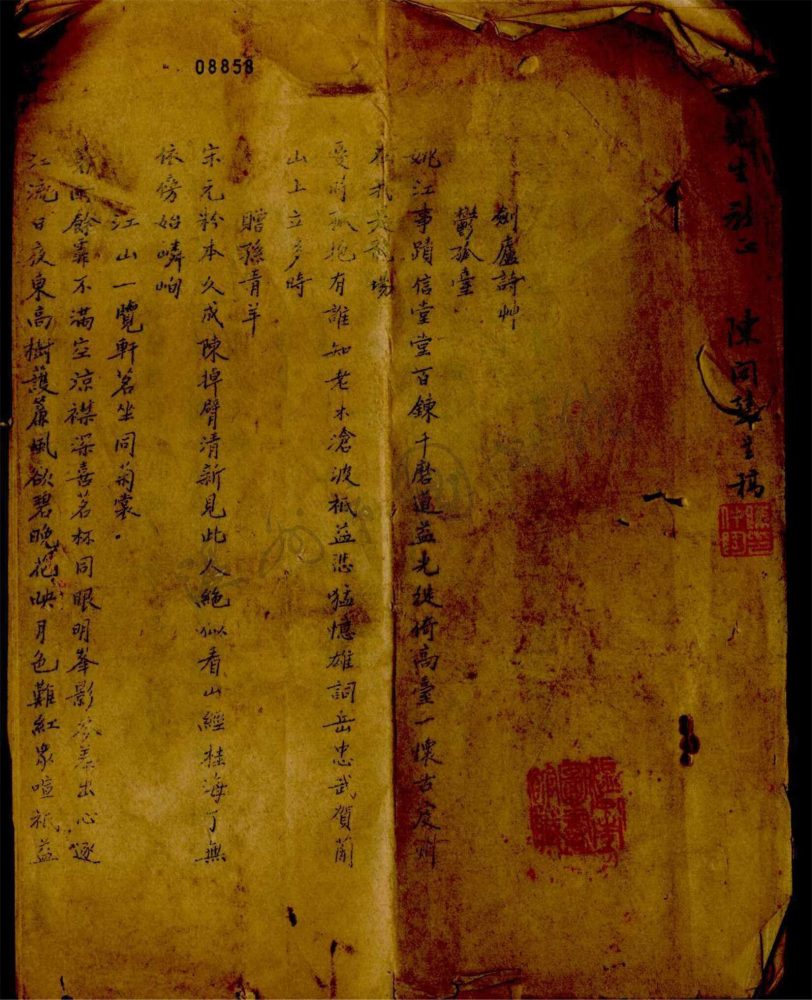 08858
先生 陳 稿
劍廬詩艸
鬱孤臺
姚江事蹟信堂堂百鍊千磨道益光徙倚高臺一懷古虔州
場
憂時孤抱有誰知老木滄波祇益悲猛憶雄詞岳忠武賀蘭
山上立多時
贈孫青羊
宋元粉本久成陳掉臂清新見此人絕似看山經桂海了無
依傍始嶙峋
江山一覽軒茗坐同菊裳
餘霏不滿空涼襟深喜茗杯同眼明峯影出心逐
江流日夜東高樹護簷風欲碧晚花映月色難紅眾喧祇益